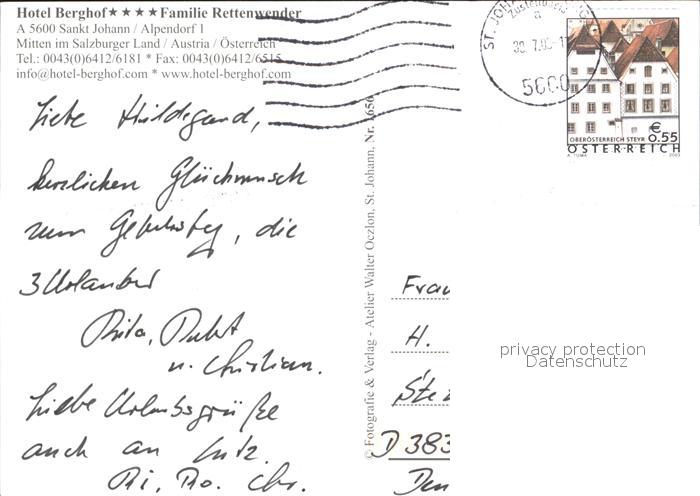 Hotel Berghof★★★★Familie Rettenwender
A 5600 Sankt Johann / Alpendorf 1
Mitten im Salzburger Land / Austria / Österreich
Tel.: 0043(0)6412/6181 * Fax: 0043(0)6412/6515
info@hotel-berghof.com * www.hotel-berghof.com
Liebe Hildegund,
herzlichen Glückwunsch
zum Geburtstag, die
3 Urlauber
Rita,
u. Christian.
Liebe Urlaubsgrüße
auch an Lutz.
Ri, Ro. Chr.
© Fotografie & Verlag - Atelier Walter Oczlon, St. Johann, Nr. 1656
ST. JOHANN
5600
OBERÖSTERREICH STEYR
€ 0.55
ÖSTERREICH
A. TUMA 2003
Frau
H.
D 383
privacy protection
Datenschutz